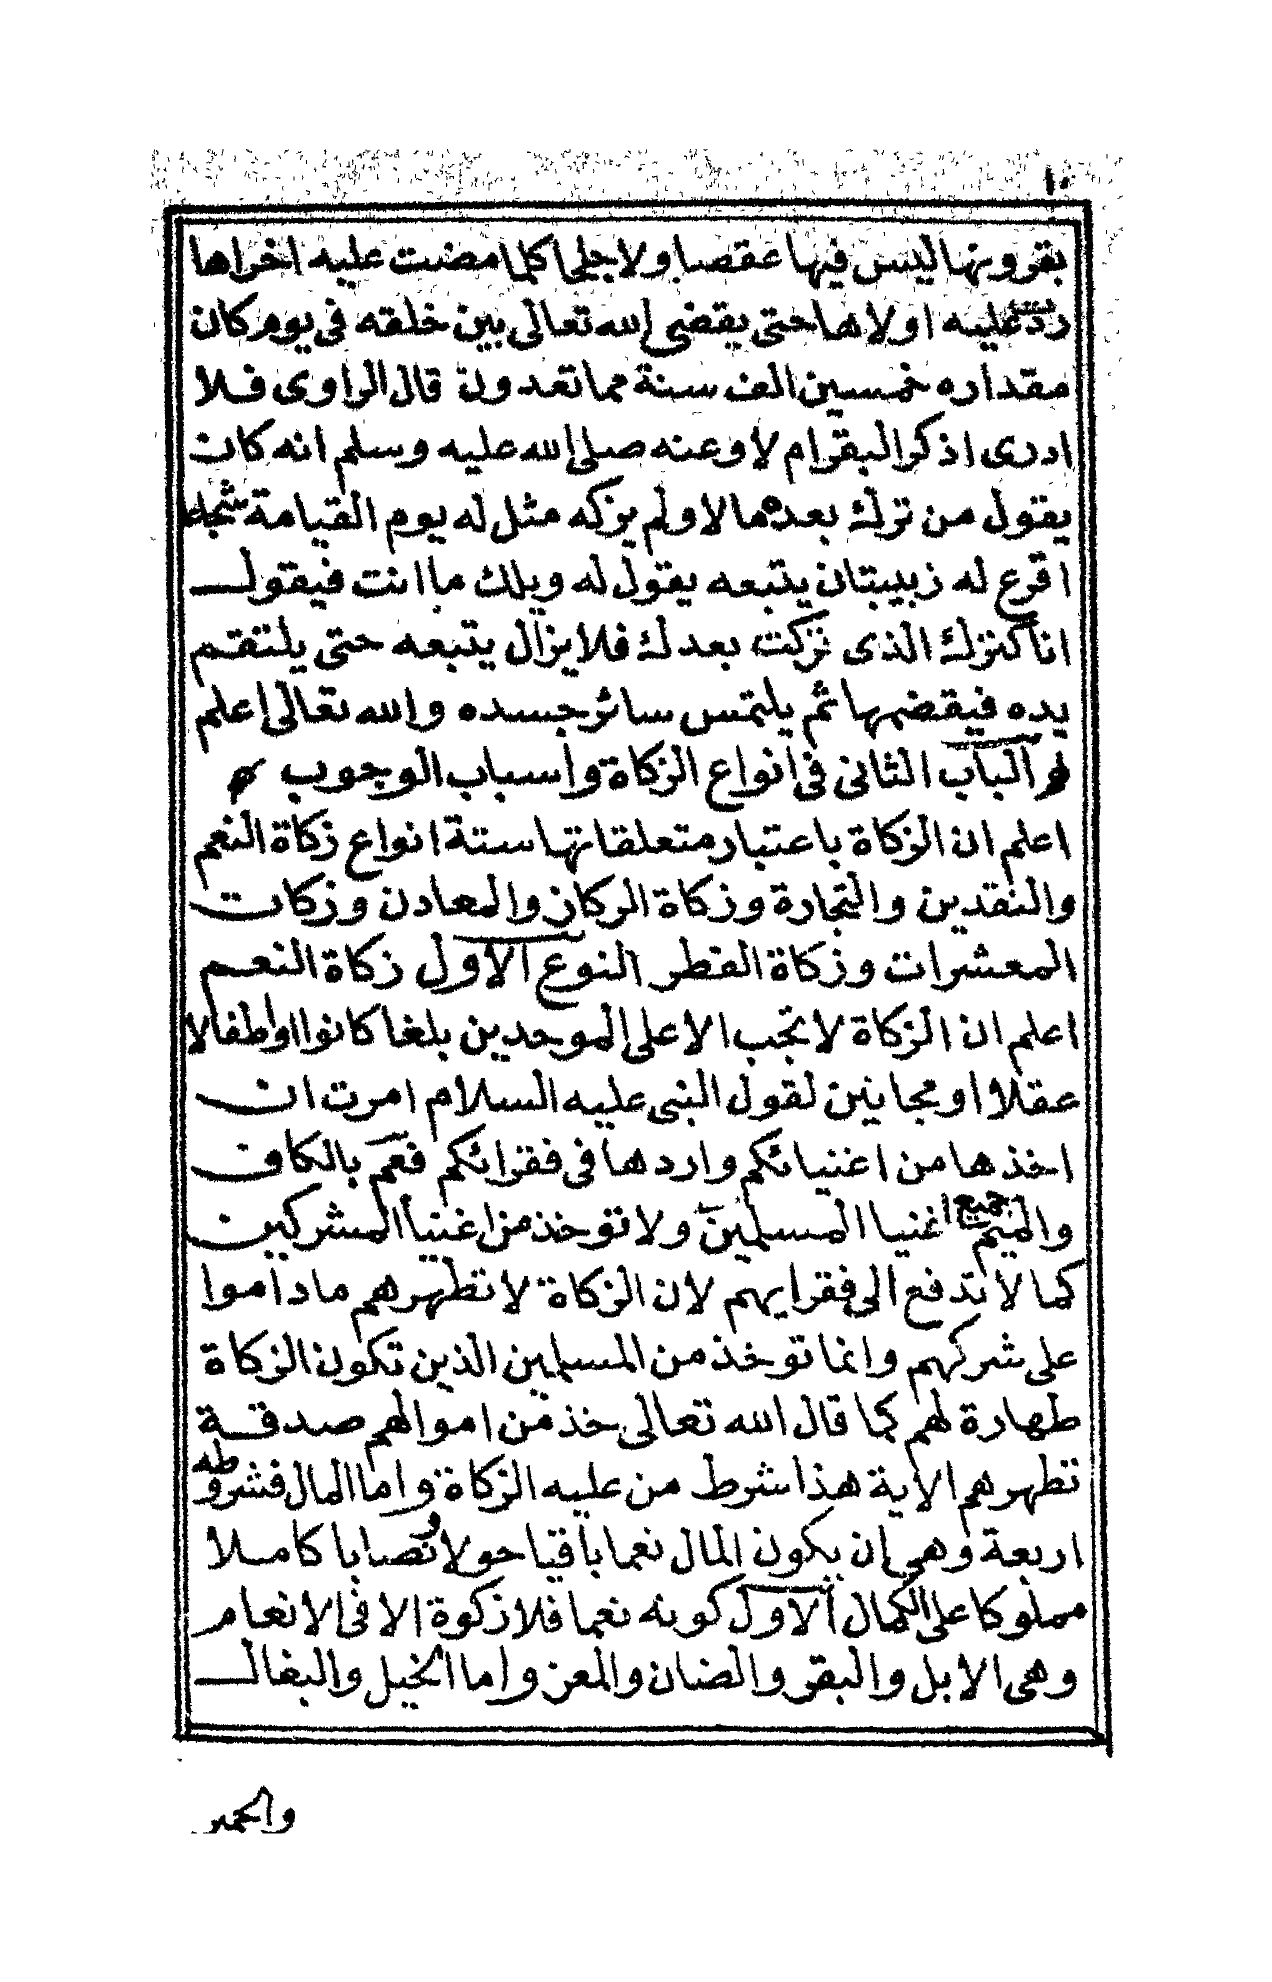 ١٠
بقرونها ليس فيها عقصا ولا جلحا كلما مضت عليه اخراها
ردت عليه اولاها حتى يقضى الله تعالى بين خلقه فى يوم كان
مقداره خمسين الف سنة مما تعدون قال الراوى فلا
ادرى اذكر البقر ام لا وعنه صلى الله عليه وسلم انه كان
يقول من ترك بعده مالا ولم يزكه مثل له يوم القيامة شجاعا
اقرع له زبيبتان يتبعه يقول له ويلك ما انت فيقول
انا كنزك الذى تركت بعدك فلا يزال يتبعه حتى يلتقم
يده فيقضمها ثم يلتمس سائر جسده والله تعالى اعلم
الباب الثانى فى انواع الزكاة واسباب الوجوب
اعلم ان الزكاة باعتبار متعلقاتها ستة انواع زكاة النعم
والنقدين والتجارة وزكاة الركاز والمعادن وزكات
المعشرات وزكاة الفطر النوع الاول زكاة النعم
اعلم ان الزكاة لا تجب الا على الموحدين بلغا كانوا او اطفالا
عقلا او مجانين لقول النبى عليه السلام امرت ان
اخذها من اغنيائكم واردها فى فقرائكم فعم بالكاف
والميم جميع اغنيا المسلمين ولا توخذ من اغنيأ المشركين
كما لا تدفع الى فقرايهم لان الزكاة لا تطهرهم ما داموا
على شركهم وانما توخذ من المسلمين الذين تكون الزكاة
طهارة لهم كما قال الله تعالى خذ من اموالهم صدقة
تطهرهم الاية هذا شرط من عليه الزكاة واما المال فشروطه
اربعة وهى ان يكون المال نعما باقيا حولا ونصابا كاملا
مملوكا على الكمال الاول كونه نعما فلا زكوة الا فى الانعام
وهى الابل والبقر والضان والمعز واما الخيل والبغال
والحمير